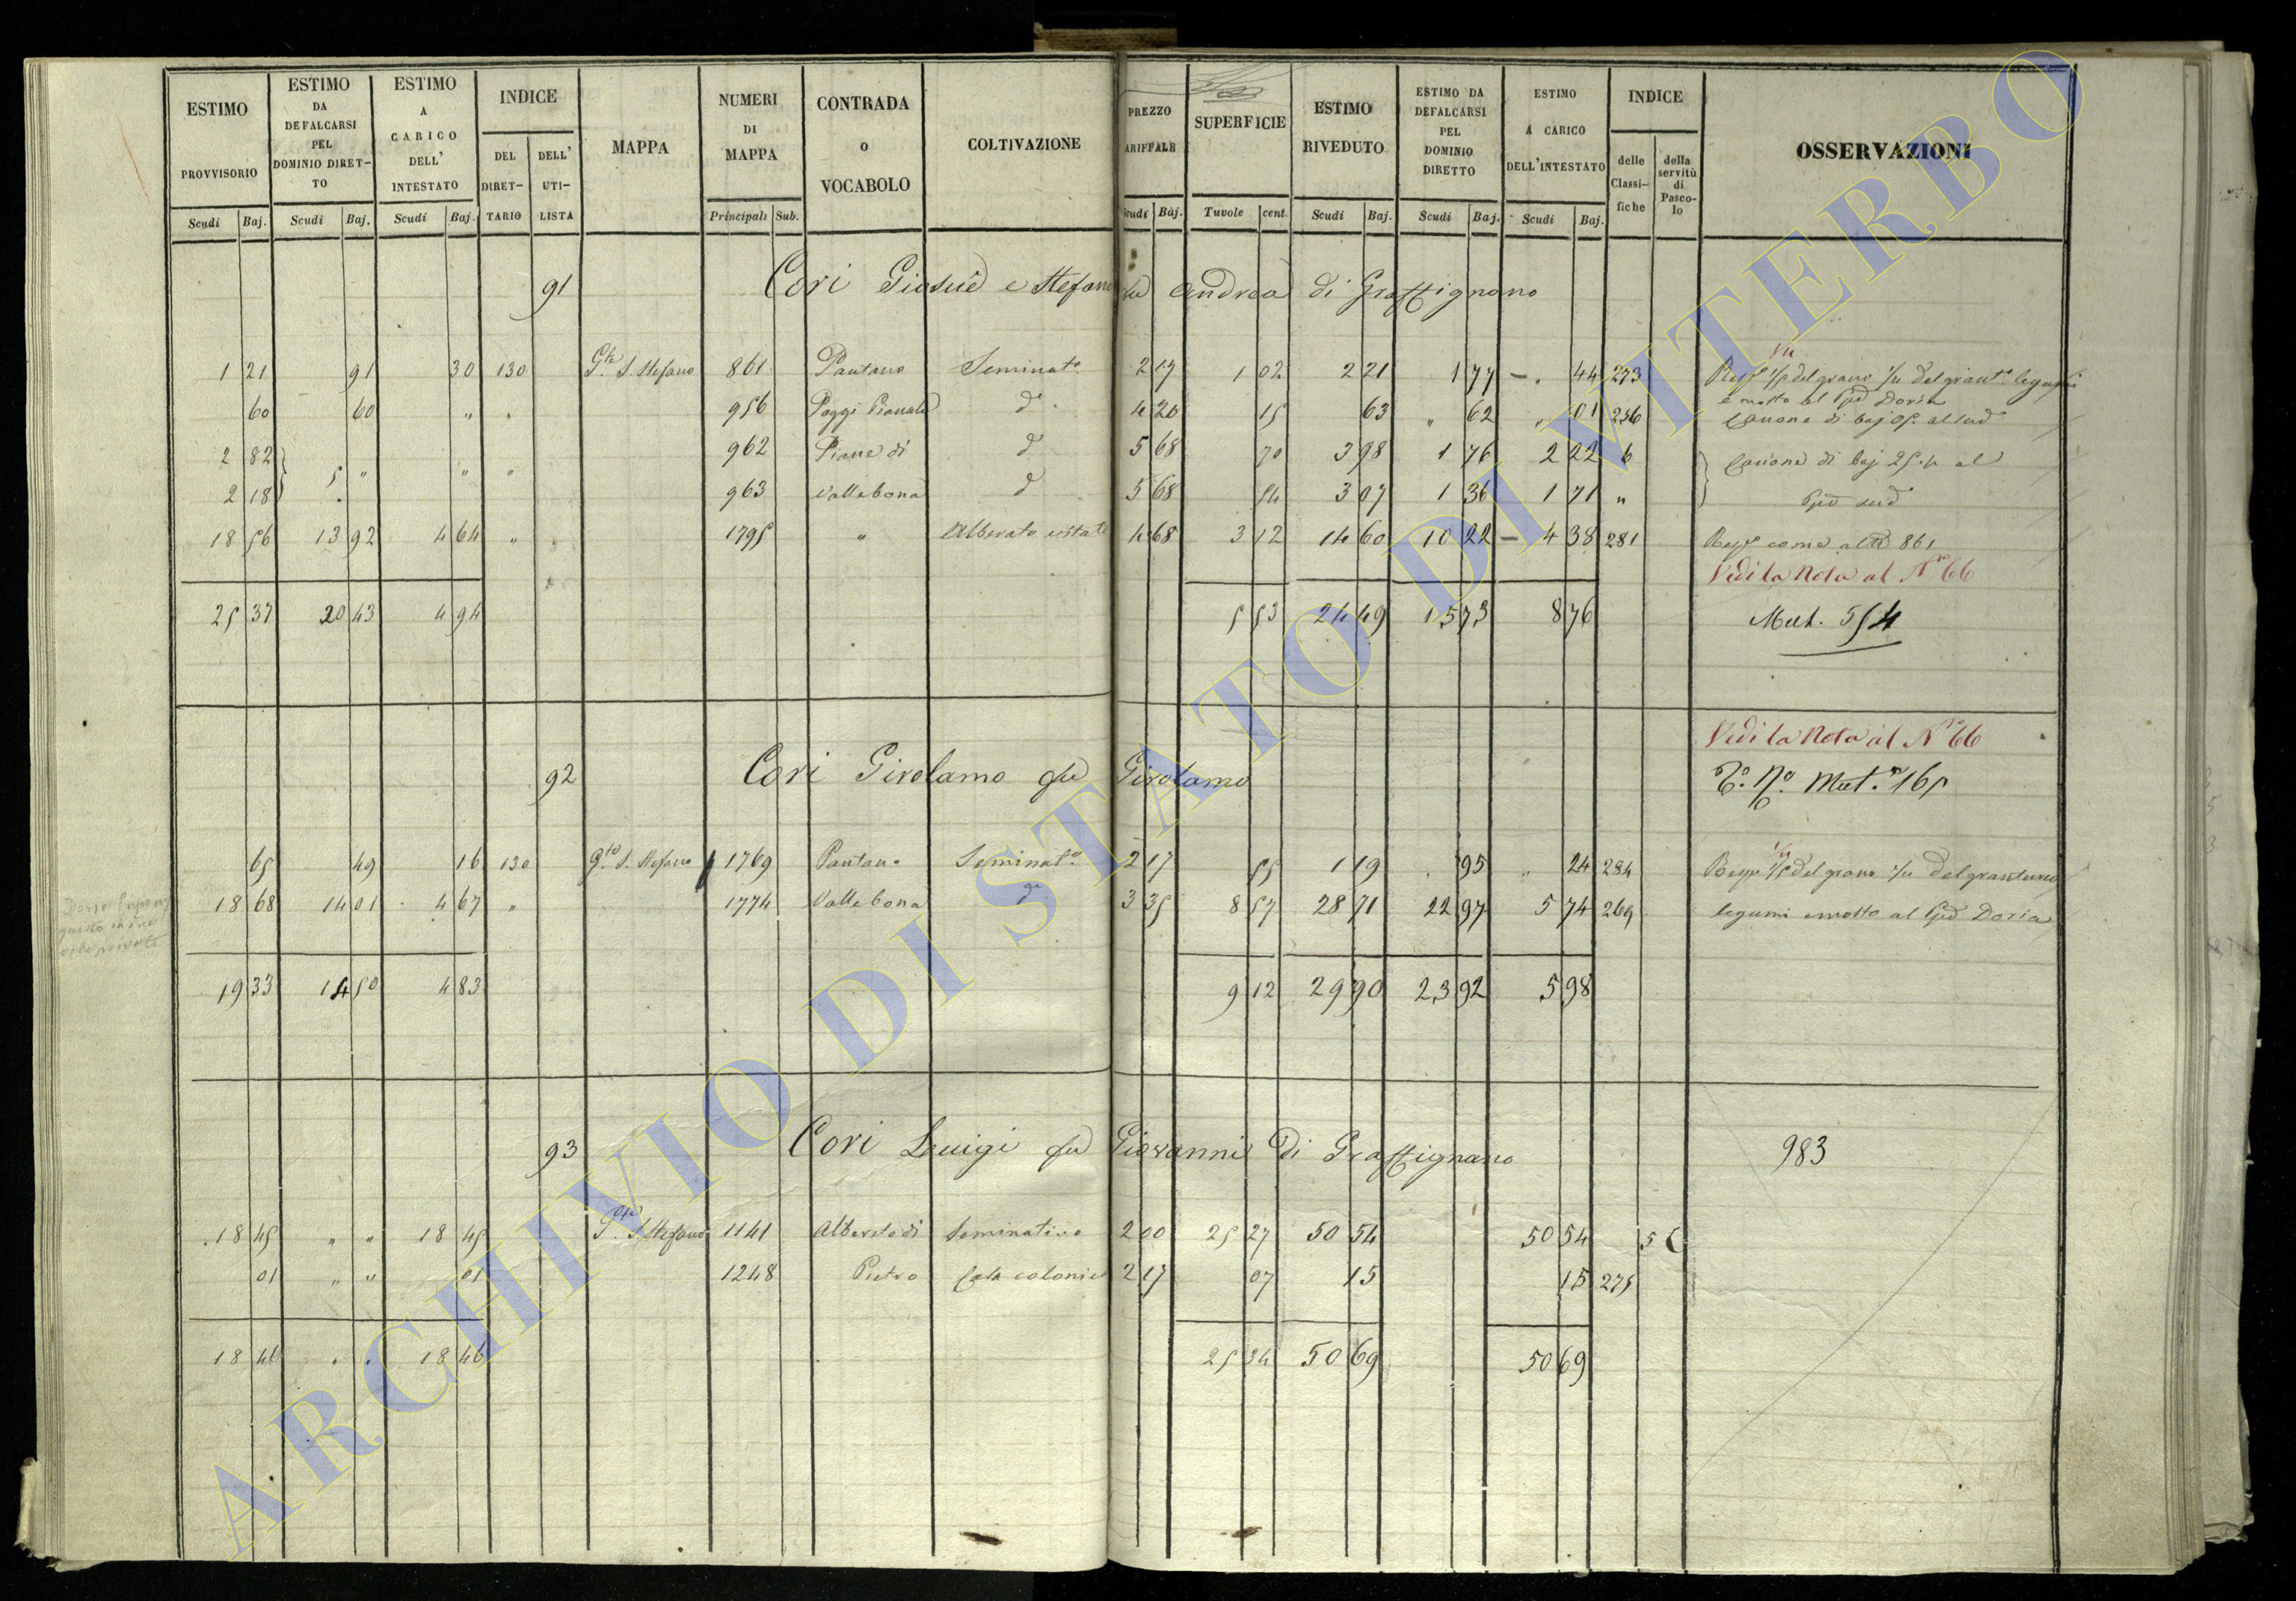 ESTIMO PROVVISORIO Scudi Baj.
ESTIMO DA DEFALCARSI PEL DOMINIO DIRET-TO Scudi Baj.
ESTIMO A CARICO DELL' INTESTATO Scudi Baj.
INDICE DEL DIRET-TARIO DELL' UTI-LISTA
MAPPA
NUMERI DI MAPPA Principali Sub.
CONTRADA O VOCABOLO
COLTIVAZIONE
PREZZO ARIFFALE Scudi Baj.
SUPERFICIE Tuvole cent.
ESTIMO RIVEDUTO Scudi Baj.
ESTIMO DA DEFALCARSI PEL DOMINIO DIRETTO Scudi Baj.
ESTIMO A CARICO DELL'INTESTATO Scudi Baj.
INDICE delle Classi-fiche della servitù di Pasco-lo
OSSERVAZIONI
91 Cori Giosuè e Stefano fu Andrea di Graffignano
1 21 91 30 130 G.te S. Stefano 861 Pantano Seminat.o 2 17 1 02 2 21 1 77 — . 44 273 del grano 1/4 del grant.o legumi
e mosto al Doria
60 60 " " 956 Poggi d.o 4 20 15 63 " 62 " 01 256 Canone di baj 05. al sud
2 82 5 " " " 962 Piane di d.o 5 68 70 3 98 1 76 2 22 6 Canone di baj 25. al
2 18 963 Vallebona d.o 5 68 54 3 07 1 36 1 71 " sud
18 56 13 92 4 64 " 1795 " Alberato vitato 4 68 3 12 14 60 10 22 — 4 38 281 come al N 861
Vedi la Nota al N.o 66
25 37 20 43 4 94 5 53 24 49 15 73 8 76 Mut. 554
Vedi la Nota al N.o 66
92 Cori Girolamo fu Girolamo
T.o N.o Mut.e 165
65 49 16 130 G.te S. Stefano 1769 Pantano Seminat.o 2 17 55 1 19 . 95 " 24 284 del grano 1/4 del granturco
18 68 14 01 4 67 " 1774 Vallebona d.o 3 35 8 57 28 71 22 97 5 74 269 legumi e mosto al Doria
19 33 14 50 4 83 9 12 29 90 23 92 5 98
93 Cori Luigi fu Giovanni di Graffignano 983
18 45 " " 18 45 G.te S. Stefano 1141 Albereto di Seminativo 2 00 25 27 50 54 50 54 5
01 " " 01 1248 Pietro Casa colonica 2 17 07 15 15 275
18 46 " " 18 46 25 34 50 69 50 69
ARCHIVIO DI STATO DI VITERBO